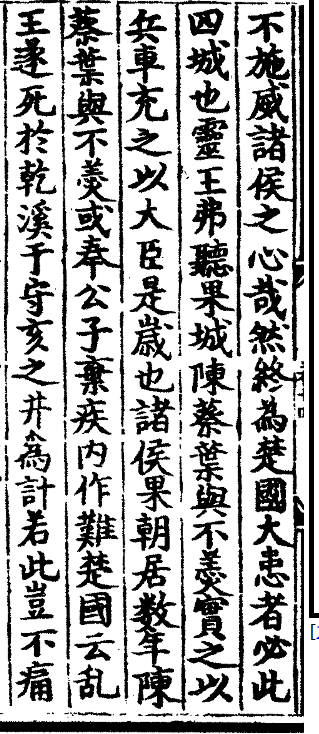 不施威諸侯之心哉然終為楚國大患者必此
四城也靈王弗聽果城陳蔡葉與不羹實之以
兵車充之以大臣是歲也諸侯果朝居數年陳
蔡葉與不羹或奉公子棄疾内作難楚國云乱
王遂死於乾溪于守亥之井為計若此豈不痛